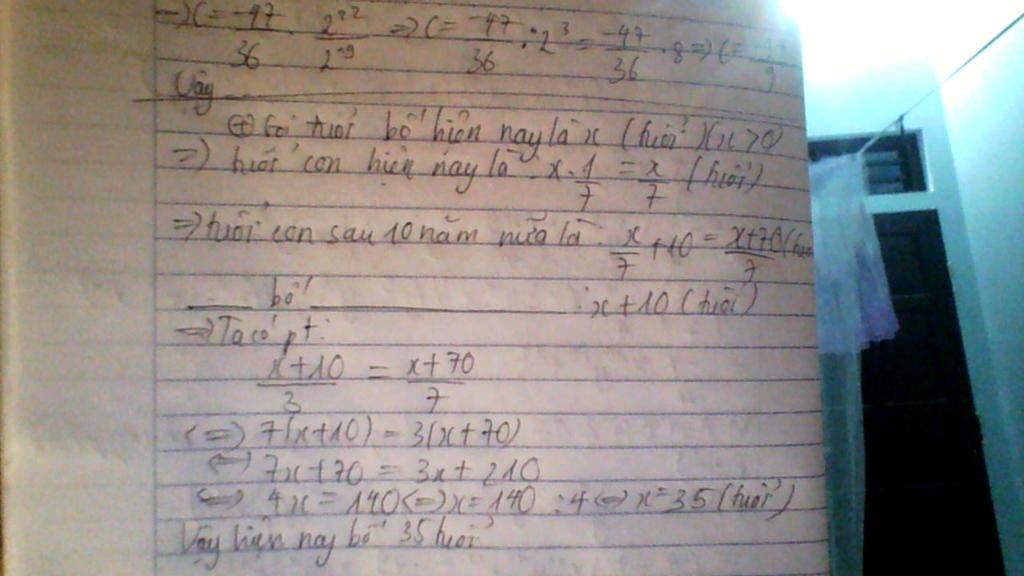 => C = -47/36 . 2^-2/2^-9 => C = -47/36 . 2^3 = -47/36 . 8 => C =
Vậy
⊕ Gọi tuổi bố hiện nay là x (tuổi) (x > 0)
=> tuổi con hiện nay là: x . 1/7 = x/7 (tuổi)
=> tuổi con sau 10 năm nữa là: x/7 + 10 = x+70/7 (tuổi
____ bố ____ : x + 10 (tuổi)
=> Ta có pt:
x+10/3 = x+70/7
<=> 7(x+10) = 3(x+70)
<=> 7x + 70 = 3x + 210
<=> 4x = 140 <=> x = 140 : 4 <=> x = 35 (tuổi)
Vậy hiện nay bố 35 tuổi